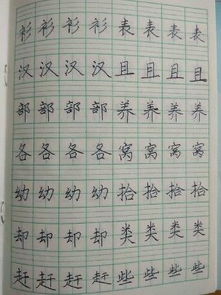 衫衫衫衫表表表表
汉汉汉汉且且且且
部部部部养养养养
各各各各窝窝窝窝
幼幼幼幼拾拾拾拾
却却却却类类类类
赶赶赶赶些些些些